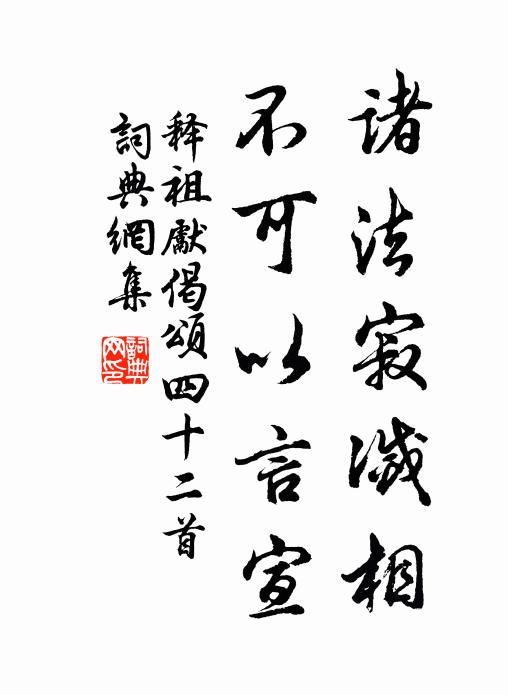 諸法寂滅相
不可以言宣
释祖獻偈頌四十二首
詞典網集
詞典网印